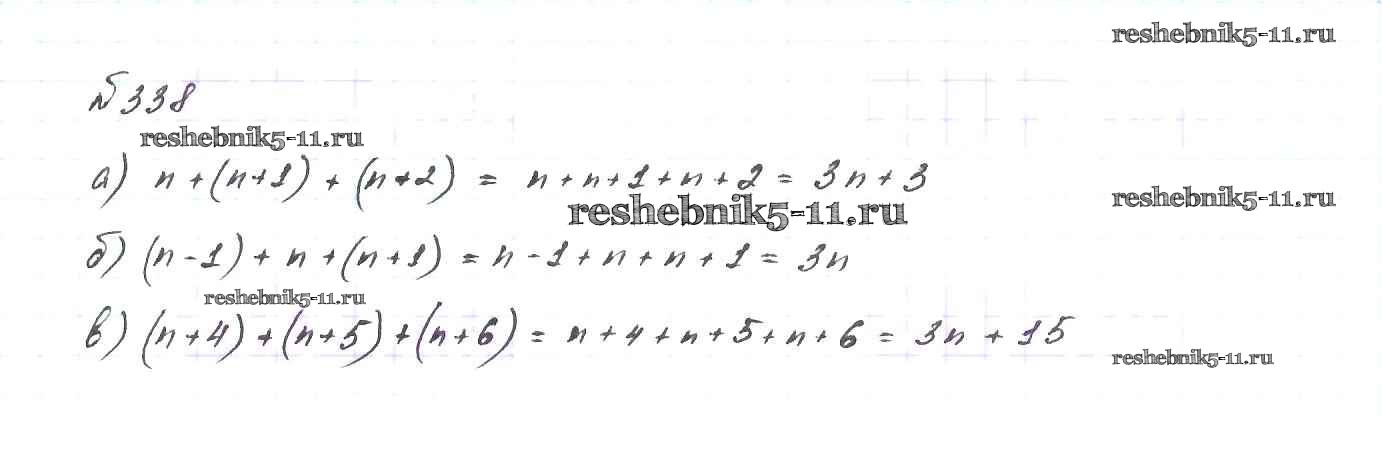 reshebnik5-11.ru
№338
reshebnik5-11.ru
а) n + (n+1) + (n+2) = n+n+1+n+2 = 3n+3
reshebnik5-11.ru
reshebnik5-11.ru
б) (n-1) + n + (n+1) = n-1+n+n+1 = 3n
reshebnik5-11.ru
в) (n+4) + (n+5) + (n+6) = n+4+n+5+n+6 = 3n+15
reshebnik5-11.ru